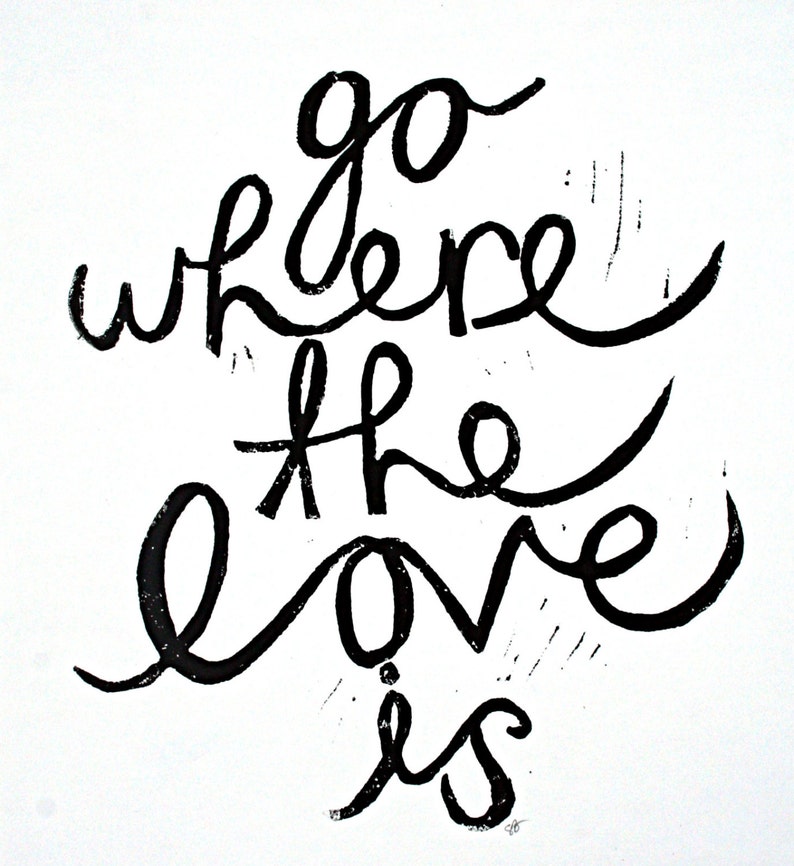 go
where
the
love
is